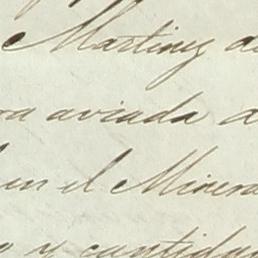 Martinez
aviada
en el Minera
y cantida